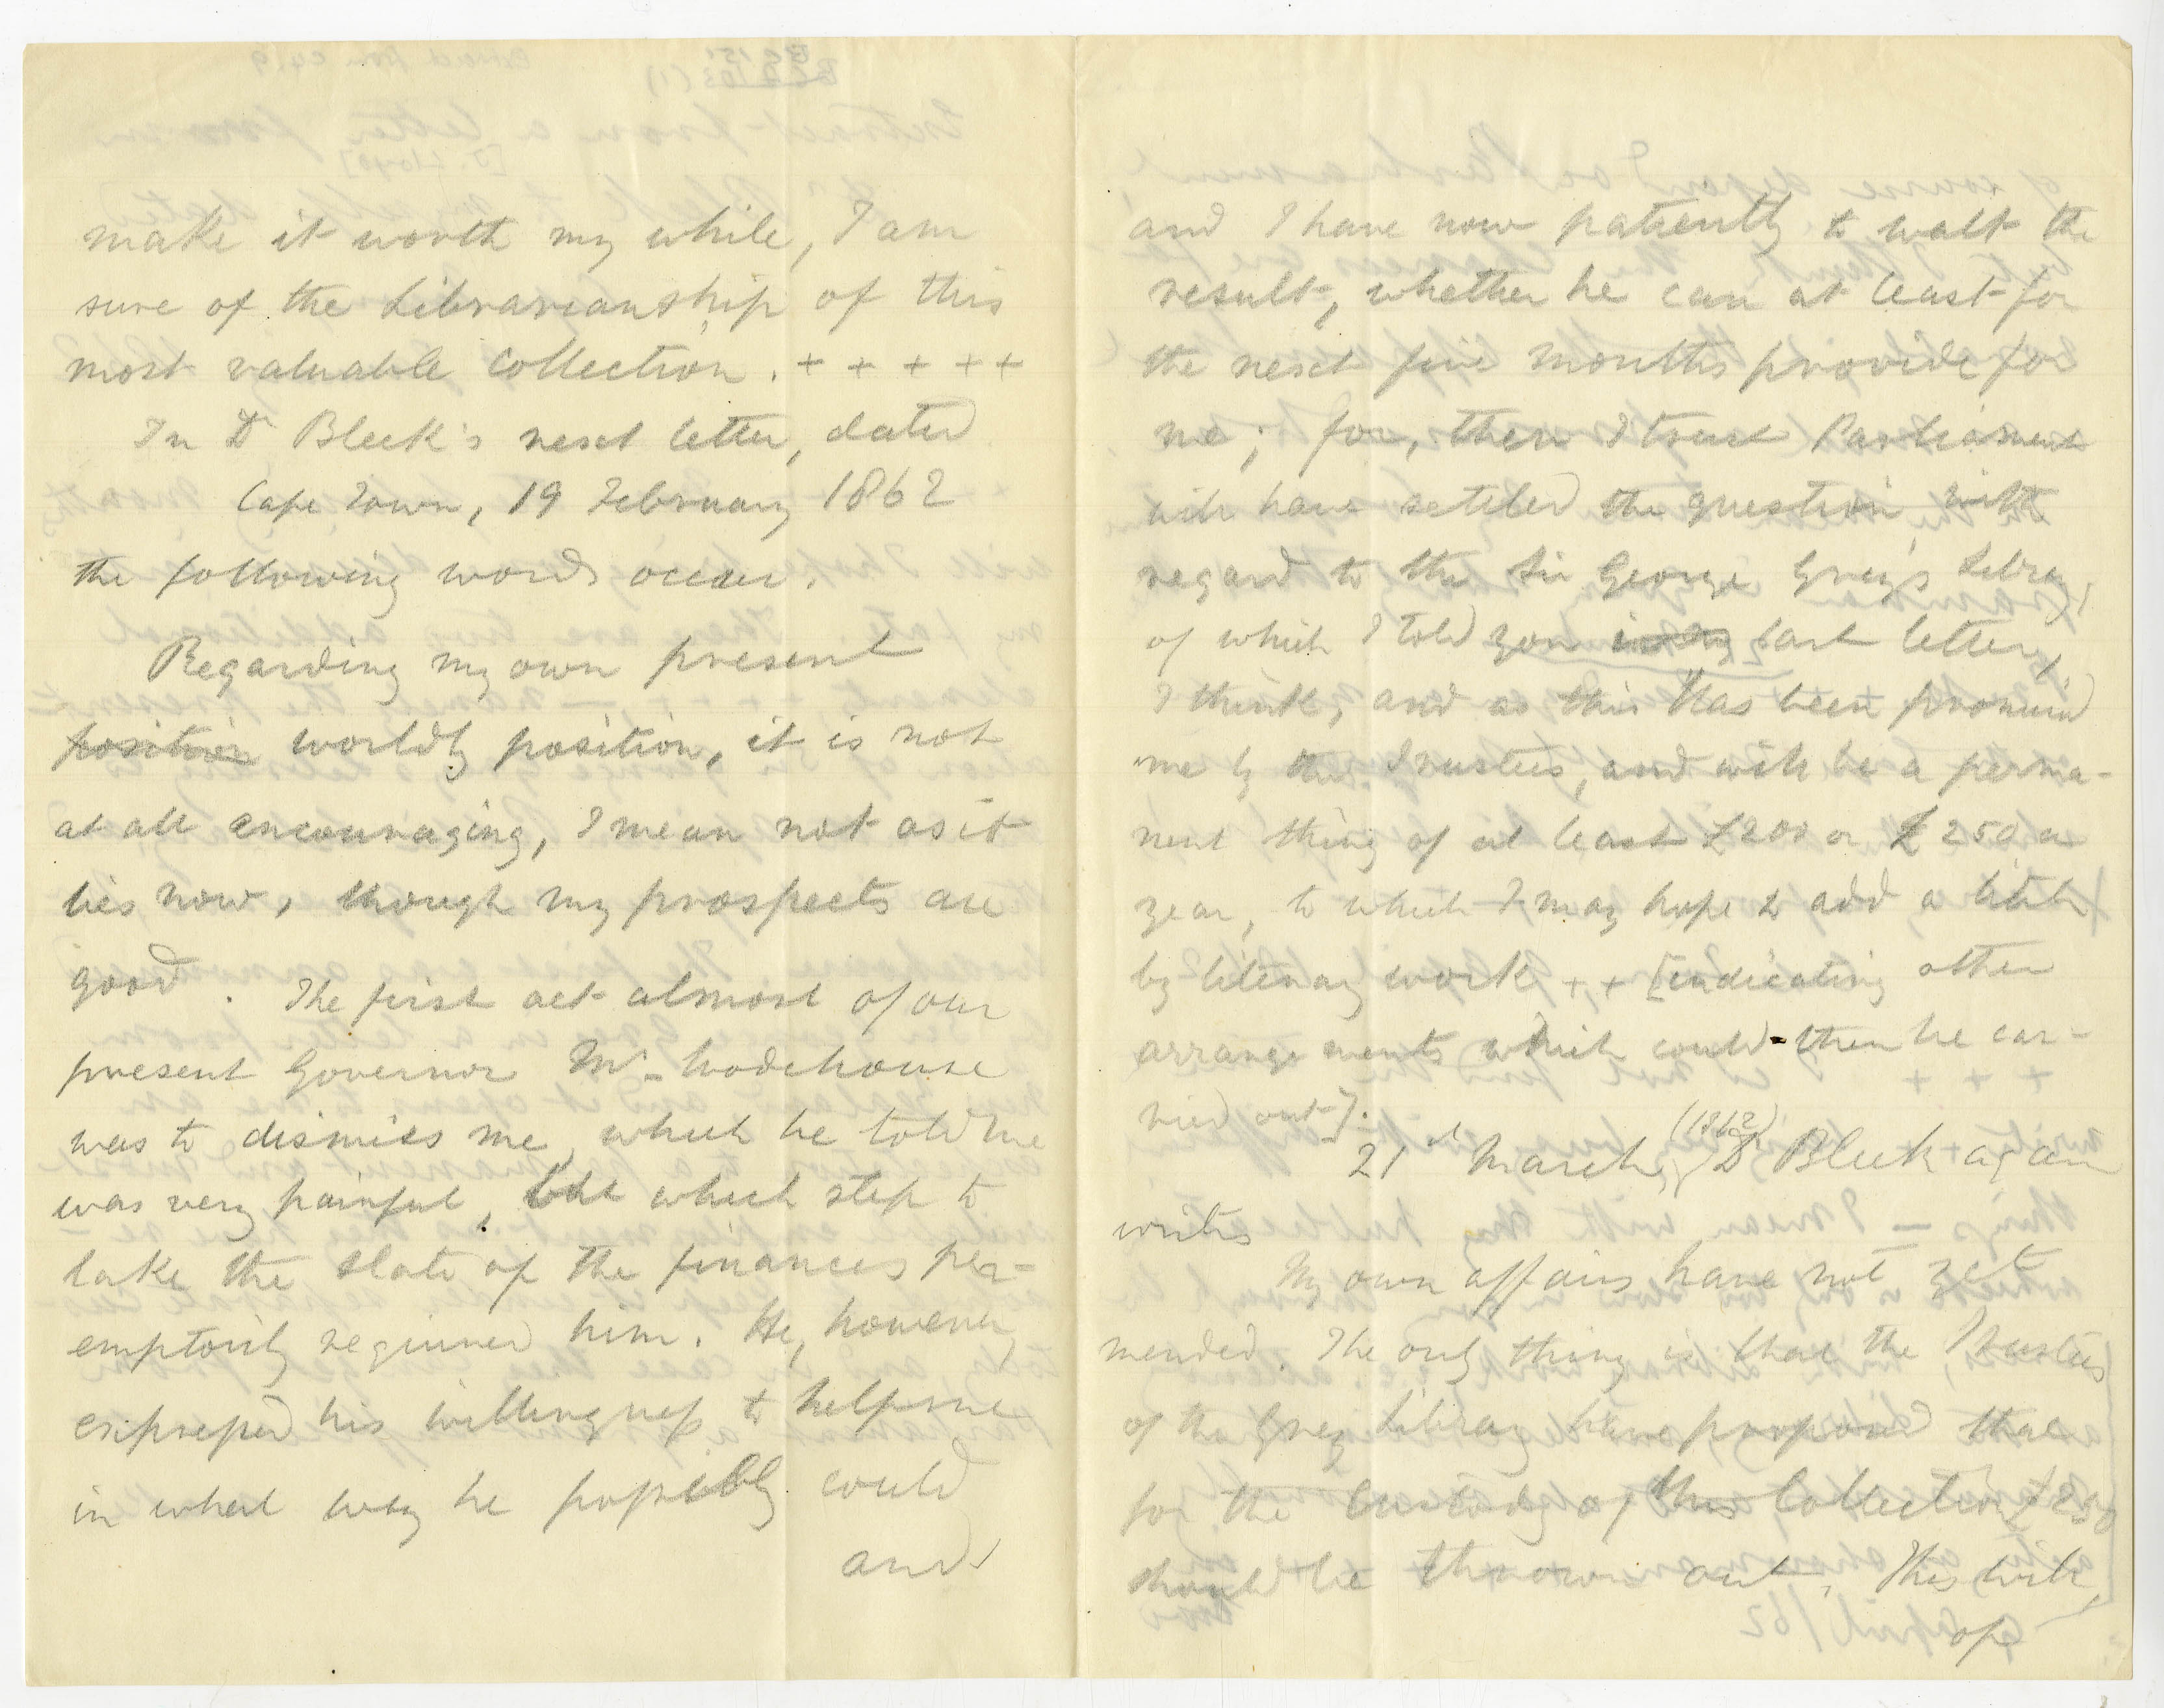 make it worth my while, I am
sure of the Librarianship of this
most valuable collection. + + + + +
In Dr Bleek's next letter, dated
Cape Town, 19 February 1862
the following words occur.
Regarding my own present
position worldly position, it is not
at all encouraging, I mean not as it
lies now, though my prospects are
good. The first act almost of our
present Governor Mr Wodehouse
was to dismiss me, which he told me
was very painful, but which step to
take the state of the finances per-
emptorily required him. He, however,
expressed his willingness to help me
in what way he possibly could
and
and I have now patiently to wait the
result, whether he can at least for
the next five months provide for
me; for, then I trust Parliament
will have settled the question with
regard to the Sir George Grey's Library,
of which I told you in my last letter,
I think, and as this has been promised
me by the Trustees, and will be a perma-
nent thing of at least £200 or £250 a
year, to which I may hope to add a little
by literary work + + [indicating other
arrangements which could then be car-
ried out].
21st March, (1862) Dr Bleek again
writes
My own affairs have not yet
mended. The only thing is that the Trustees
of the Grey Library have proposed that
for the Custody of this Collection £250
should be thrown out. This will,
of